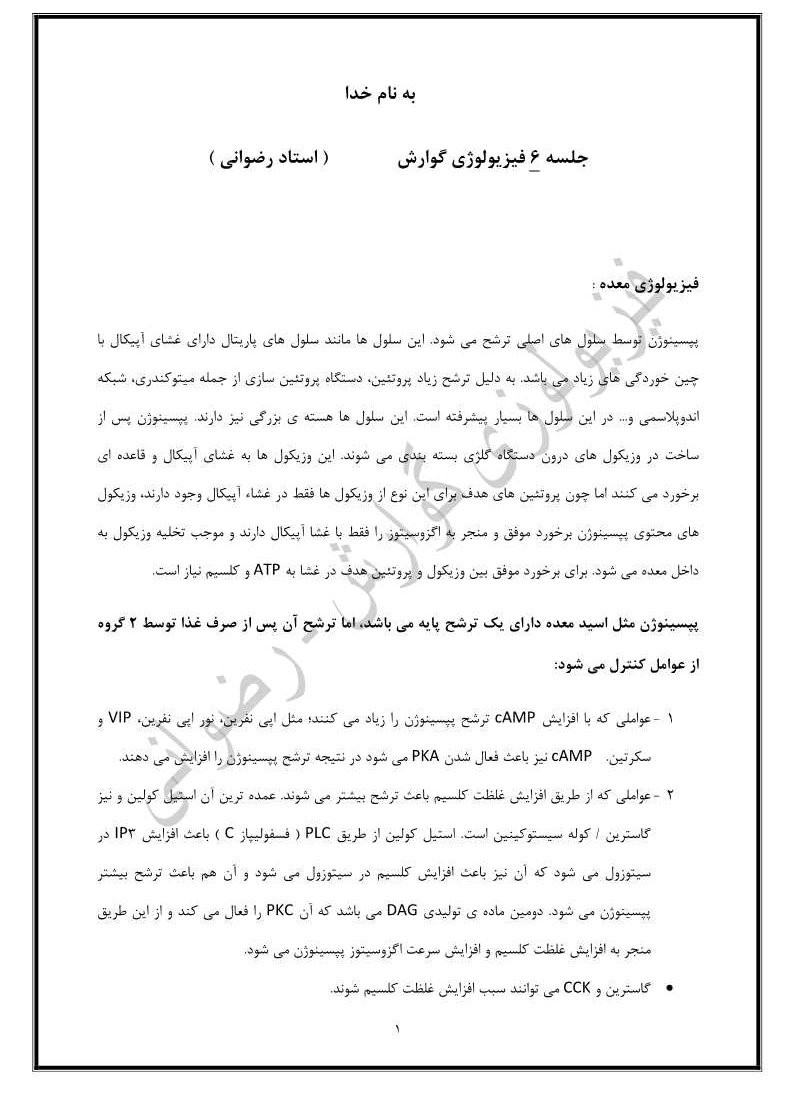 به نام خدا
جلسه ۶ فیزیولوژی گوارش ( استاد رضوانی )
فیزیولوژی معده :
پپسینوژن توسط سلول های اصلی ترشح می شود. این سلول ها مانند سلول های پاریتال دارای غشای آپیکال با
چین خوردگی های زیاد می باشد. به دلیل ترشح زیاد پروتئین، دستگاه پروتئین سازی از جمله میتوکندری، شبکه
اندوپلاسمی و... در این سلول ها بسیار پیشرفته است. این سلول ها هسته ی بزرگی نیز دارند. پپسینوژن پس از
ساخت در وزیکول های درون دستگاه گلژی بسته بندی می شوند. این وزیکول ها به غشای آپیکال و قاعده ای
برخورد می کنند اما چون پروتئین های هدف برای این نوع از وزیکول ها فقط در غشاء آپیکال وجود دارند، وزیکول
های محتوی پپسینوژن برخورد موفق و منجر به اگزوسیتوز را فقط با غشا آپیکال دارند و موجب تخلیه وزیکول به
داخل معده می شود. برای برخورد موفق بین وزیکول و پروتئین هدف در غشا به ATP و کلسیم نیاز است.
پپسینوژن مثل اسید معده دارای یک ترشح پایه می باشد، اما ترشح آن پس از صرف غذا توسط ۲ گروه
از عوامل کنترل می شود:
۱ -عواملی که با افزایش cAMP ترشح پپسینوژن را زیاد می کنند؛ مثل اپی نفرین، نور اپی نفرین، VIP و
سکرتین. cAMP نیز باعث فعال شدن PKA می شود در نتیجه ترشح پپسینوژن را افزایش می دهند.
۲ -عواملی که از طریق افزایش غلظت کلسیم باعث ترشح بیشتر می شوند. عمده ترین آن استیل کولین و نیز
گاسترین / کوله سیستوکینین است. استیل کولین از طریق PLC ( فسفولیپاز C ) باعث افزایش IP۳ در
سیتوزول می شود که آن نیز باعث افزایش کلسیم در سیتوزول می شود و آن هم باعث ترشح بیشتر
پپسینوژن می شود. دومین ماده ی تولیدی DAG می باشد که آن PKC را فعال می کند و از این طریق
منجر به افزایش غلظت کلسیم و افزایش سرعت اگزوسیتوز پپسینوژن می شود.
• گاسترین و CCK می توانند سبب افزایش غلظت کلسیم شوند.
۱
فیزیولوژی گوارش - رضوانی